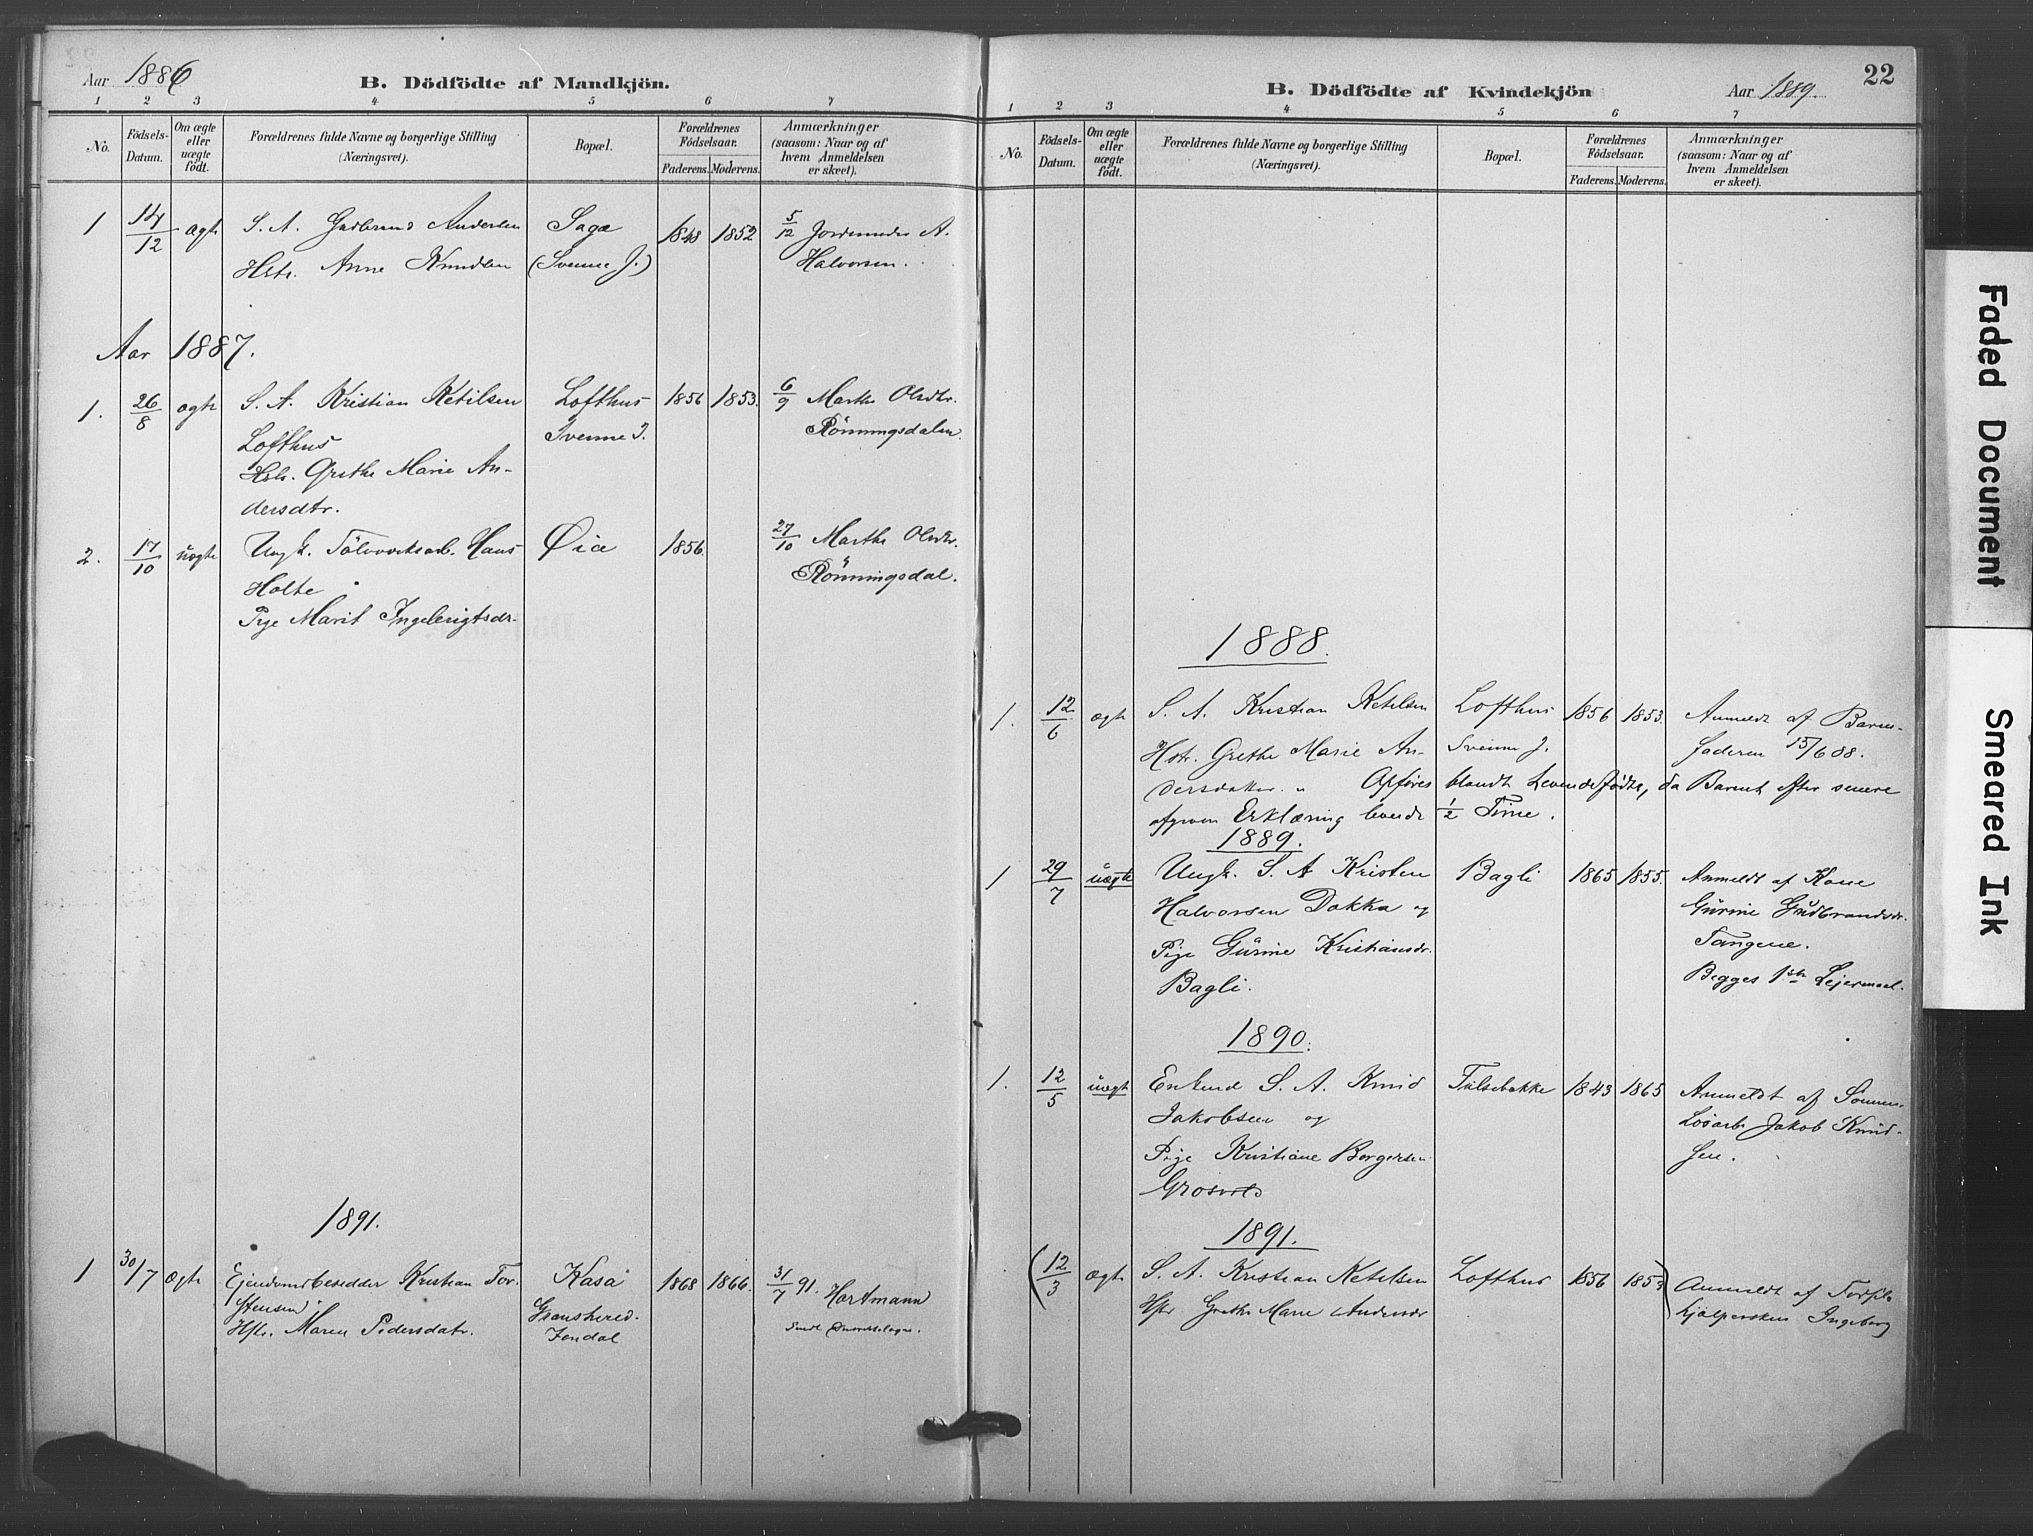 Aar 1886
B. Dödfödte af Mandkjön.
1 2 3 4 5 6 7
No.
Födsels-
Datum.
Om ægte
eller
uægte
födt.
Forældrenes fulde Navne og borgerlige Stilling
(Næringsvei).
Bopæl.
Forældrenes
Födselsaar.
Faderens. Moderens.
Anmærkninger
(saasom: Naar og af
hvem Anmeldelsen
er skeet).
1 14/12 ægte S. A. Gudbrand Andersen Saga 1848 1852 5/12 Jordemoder A.
Hstr. Anne Knudsen (Svenne J.) Halvorsen.
Aar 1887.
1. 26/8 ægte S. A. Kristian Ketilsen Lofthus 1856 1853. 6/9 Marthe Olsdtr.
Lofthus Svenne J. Rönningsdalen.
Hstr. Grethe Marie An-
dersdtr.
2. 17/10 uægte Ungk. Hans Øia 1856. 27/10 Marthe Olsdtr.
Holte Rönningsdal.
Pige Marit Ingebrigtsdr.
1891.
1 30/7 ægte Ejendomsbesidder Kristian Tor- Kasa 1868 1866. 31/7 91. Hartmann
stensen Gransherad.
Hstr. Maren Pedersdatr. Jondal
22
B. Dödfödte af Kvindekjön
Aar 1889.
1 2 3 4 5 6 7
No.
Födsels-
Datum.
Om ægte
eller
uægte
födt.
Forældrenes fulde Navne og borgerlige Stilling
(Næringsvei).
Bopæl.
Forældrenes
Födselsaar.
Faderens. Moderens.
Anmærkninger
(saasom: Naar og af
hvem Anmeldelsen
er skeet).
1888.
1. 12/6 ægte S. A. Kristian Ketilsen Lofthus 1856 1853. Anmeldt af Barne-
Hstr. Grethe Marie An- Svenne J. faderen 15/6 88.
dersdater. Opføres blandt Levendefødte, da Barnet efter senere
afgiven Erklæring levede 1/2 Time.
1889.
1 29/7 uægte Ungk. S. A. Kristen Bagli 1865 1855. Anmeldt af Kone
Halvorsen Dokka og Gurine Gudbrandsdr.
Pige Gurine Kristiansdr. Tangene.
Bagli. Begges 1ste Lejermaal.
1890.
1. 12/5 uægte Enkemd S. A. Knud 1843 1865 Anmeldt af Sönnen
Jakobsen og Løsarb. Jakob Knud-
Pige Kristiane Borgersen sen.
1891.
(12/3 ægte S. A. Kristian Ketilsen Lofthus 1856 1853) Anmeldt af
Hstr Grethe Marie Andersdr hjælpersken Ingeborg
Faded Document
Smeared Ink